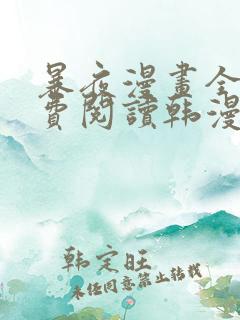 暴夜漫畫全
費閱讀韩漫
韩定旺
未任同意禁止转载